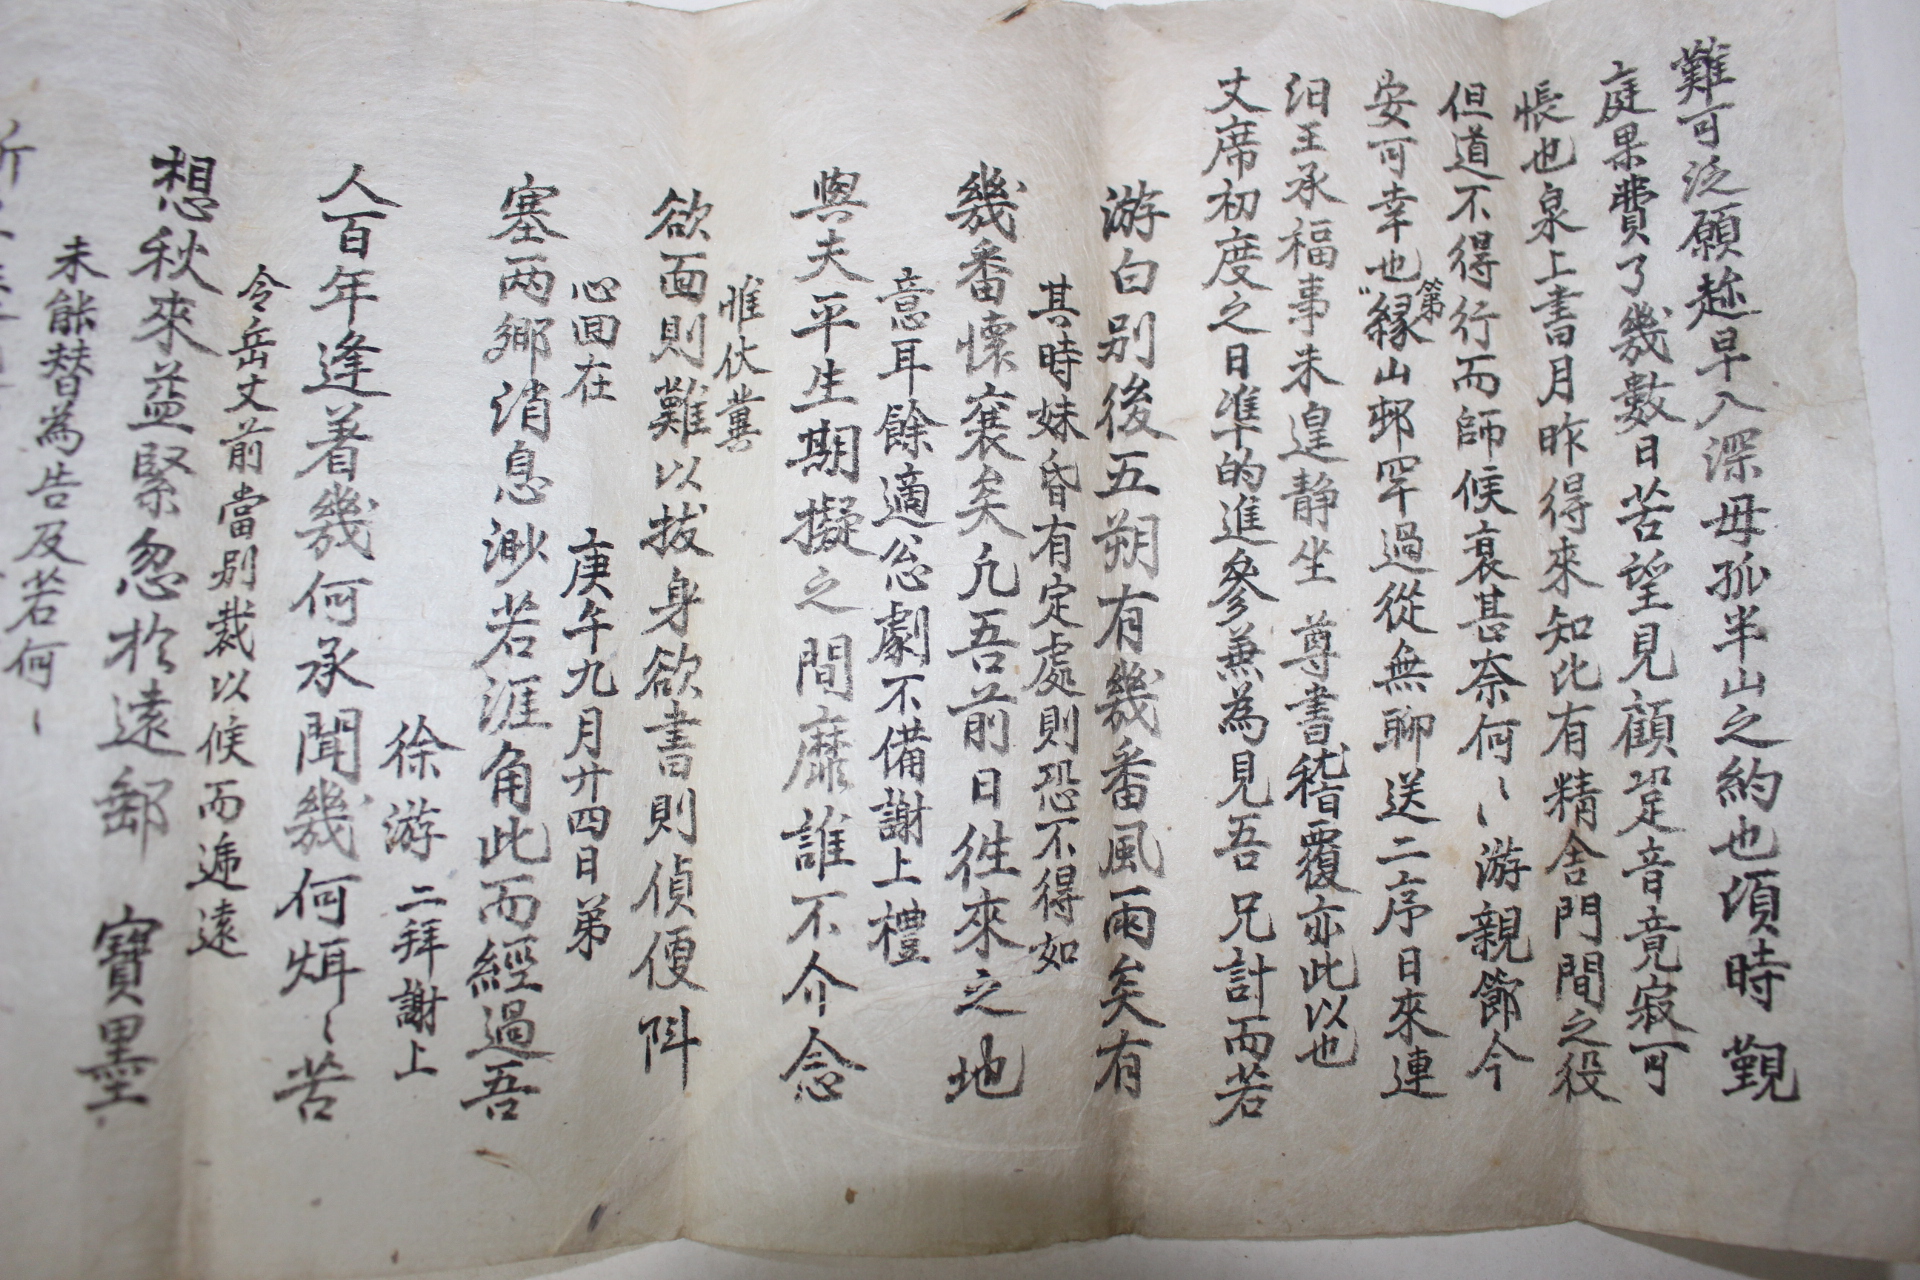 難可泛願趂早入深毋孤半山之約也頃時 覲
庭果費了幾數日苦望見顧跫音竟寂可
悵也泉上書月昨得來知比有精舍門間之役
但道不得行而師候衰甚奈何〻〻游親節今
安可幸也第緣山邨罕過從無聊送二序日來連
汨王承福事未遑静坐 尊書嵇覆亦此以也
丈席初度之日準的進參兼為見吾兄計而若
游白别後五朔有幾番風雨矣有
其時妹昏有定處則恐不得如
幾番懷襄矣凢吾前日徃來之地
意耳餘適忩劇不備謝上禮
與夫平生期擬之間靡誰不介念
惟伏兾
欲面則難以拔身欲書則偵便阧
心囬在 庚午九月廿四日弟
塞两鄉消息渺若涯角此而經過吾
徐游 二拜謝上
人百年逢着幾何承聞幾何烦〻苦
令岳丈前當别裁以候而遞遠
想秋來益緊忽於遠郵 寶墨
未能替為告及若何〻